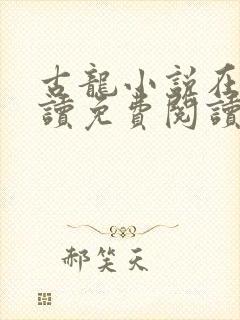 古龍小說在
讀免費閱讀
郝笑天